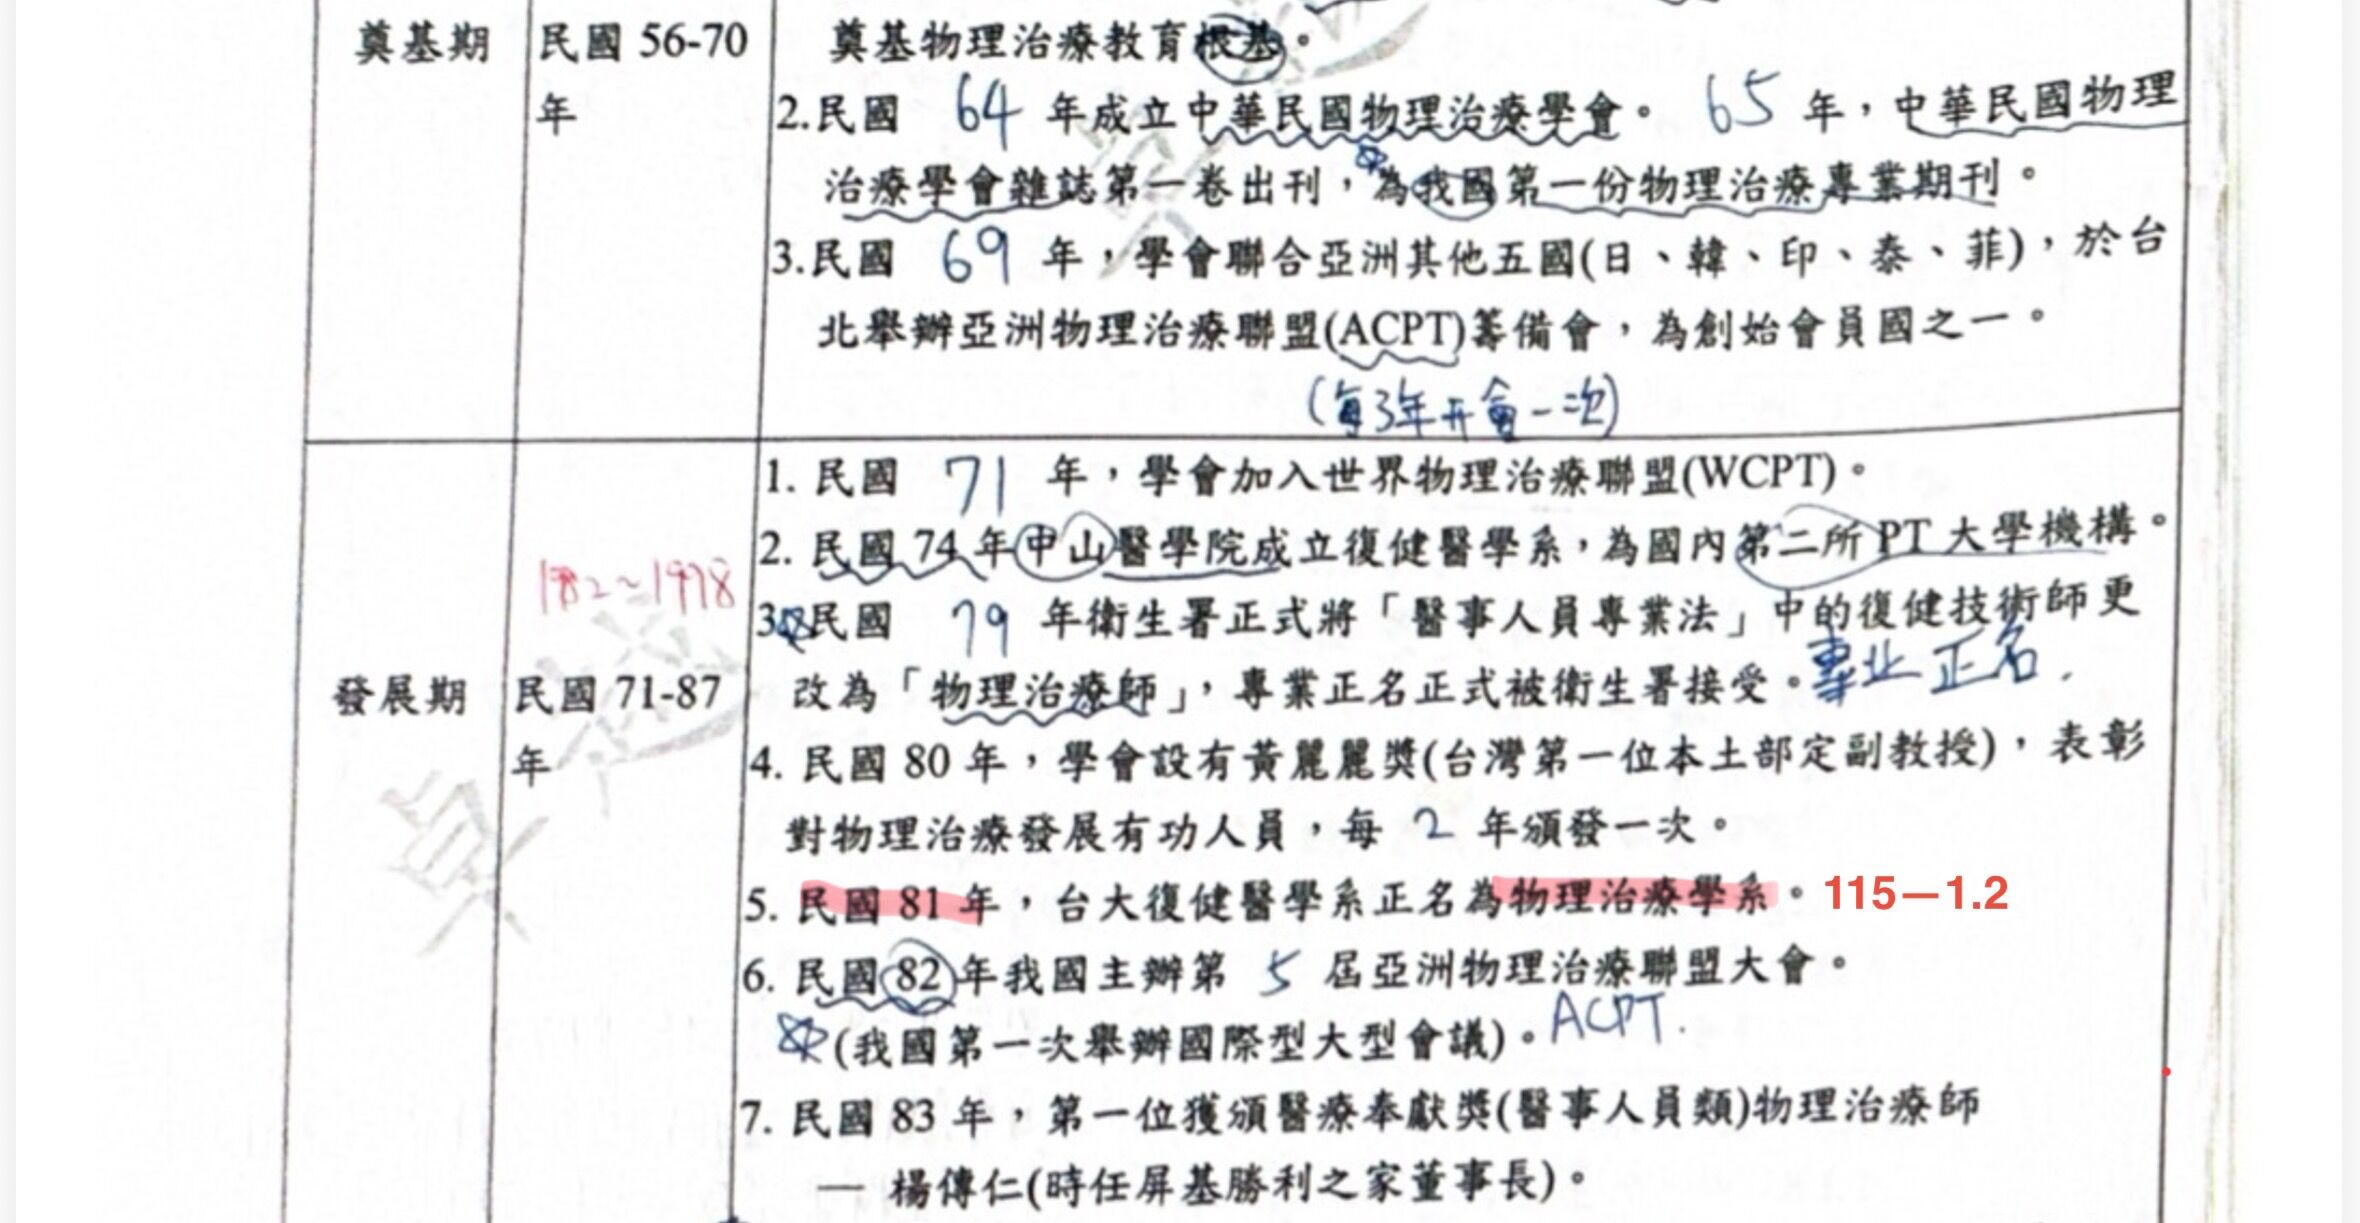 奠基期
民國 56-70
年
奠基物理治療教育根基。
2.民國 64 年成立中華民國物理治療學會。 65 年,中華民國物理
治療學會雜誌第一卷出刊,為我國第一份物理治療專業期刊。
3.民國 69 年,學會聯合亞洲其他五國(日、韓、印、泰、菲),於台
北舉辦亞洲物理治療聯盟(ACPT)籌備會,為創始會員國之一。
(每3年开會一次)
發展期
1982~1998
民國 71-87
年
1. 民國 71 年,學會加入世界物理治療聯盟(WCPT)。
2. 民國 74 年中山醫學院成立復健醫學系,為國內第二所 PT 大學機構。
3. 民國 79 年衛生署正式將「醫事人員專業法」中的復健技術師更
改為「物理治療師」,專業正名正式被衛生署接受。專业正名.
4. 民國 80 年,學會設有黃麗麗獎(台灣第一位本土部定副教授),表彰
對物理治療發展有功人員,每 2 年頒發一次。
5. 民國 81 年,台大復健醫學系正名為物理治療學系。 115—1.2
6. 民國 82 年我國主辦第 5 屆亞洲物理治療聯盟大會。
(我國第一次舉辦國際型大型會議)。ACPT.
7. 民國 83 年,第一位獲頒醫療奉獻獎(醫事人員類)物理治療師
— 楊傳仁(時任屏基勝利之家董事長)。